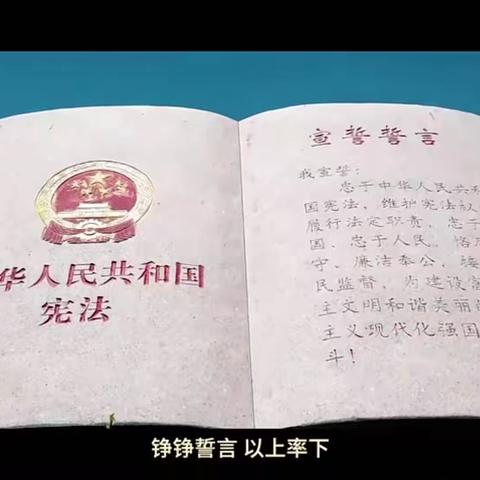 华人民共和国
宪法
宣誓誓言
我宣誓:
忠于中华人民共和
国宪法,维护宪法权
履行法定职责,忠于
国、忠于人民,恪
守、廉洁奉公,接
民监督,为建设富
主文明和谐美丽的
主义现代化强国
斗!
铮铮誓言 以上率下